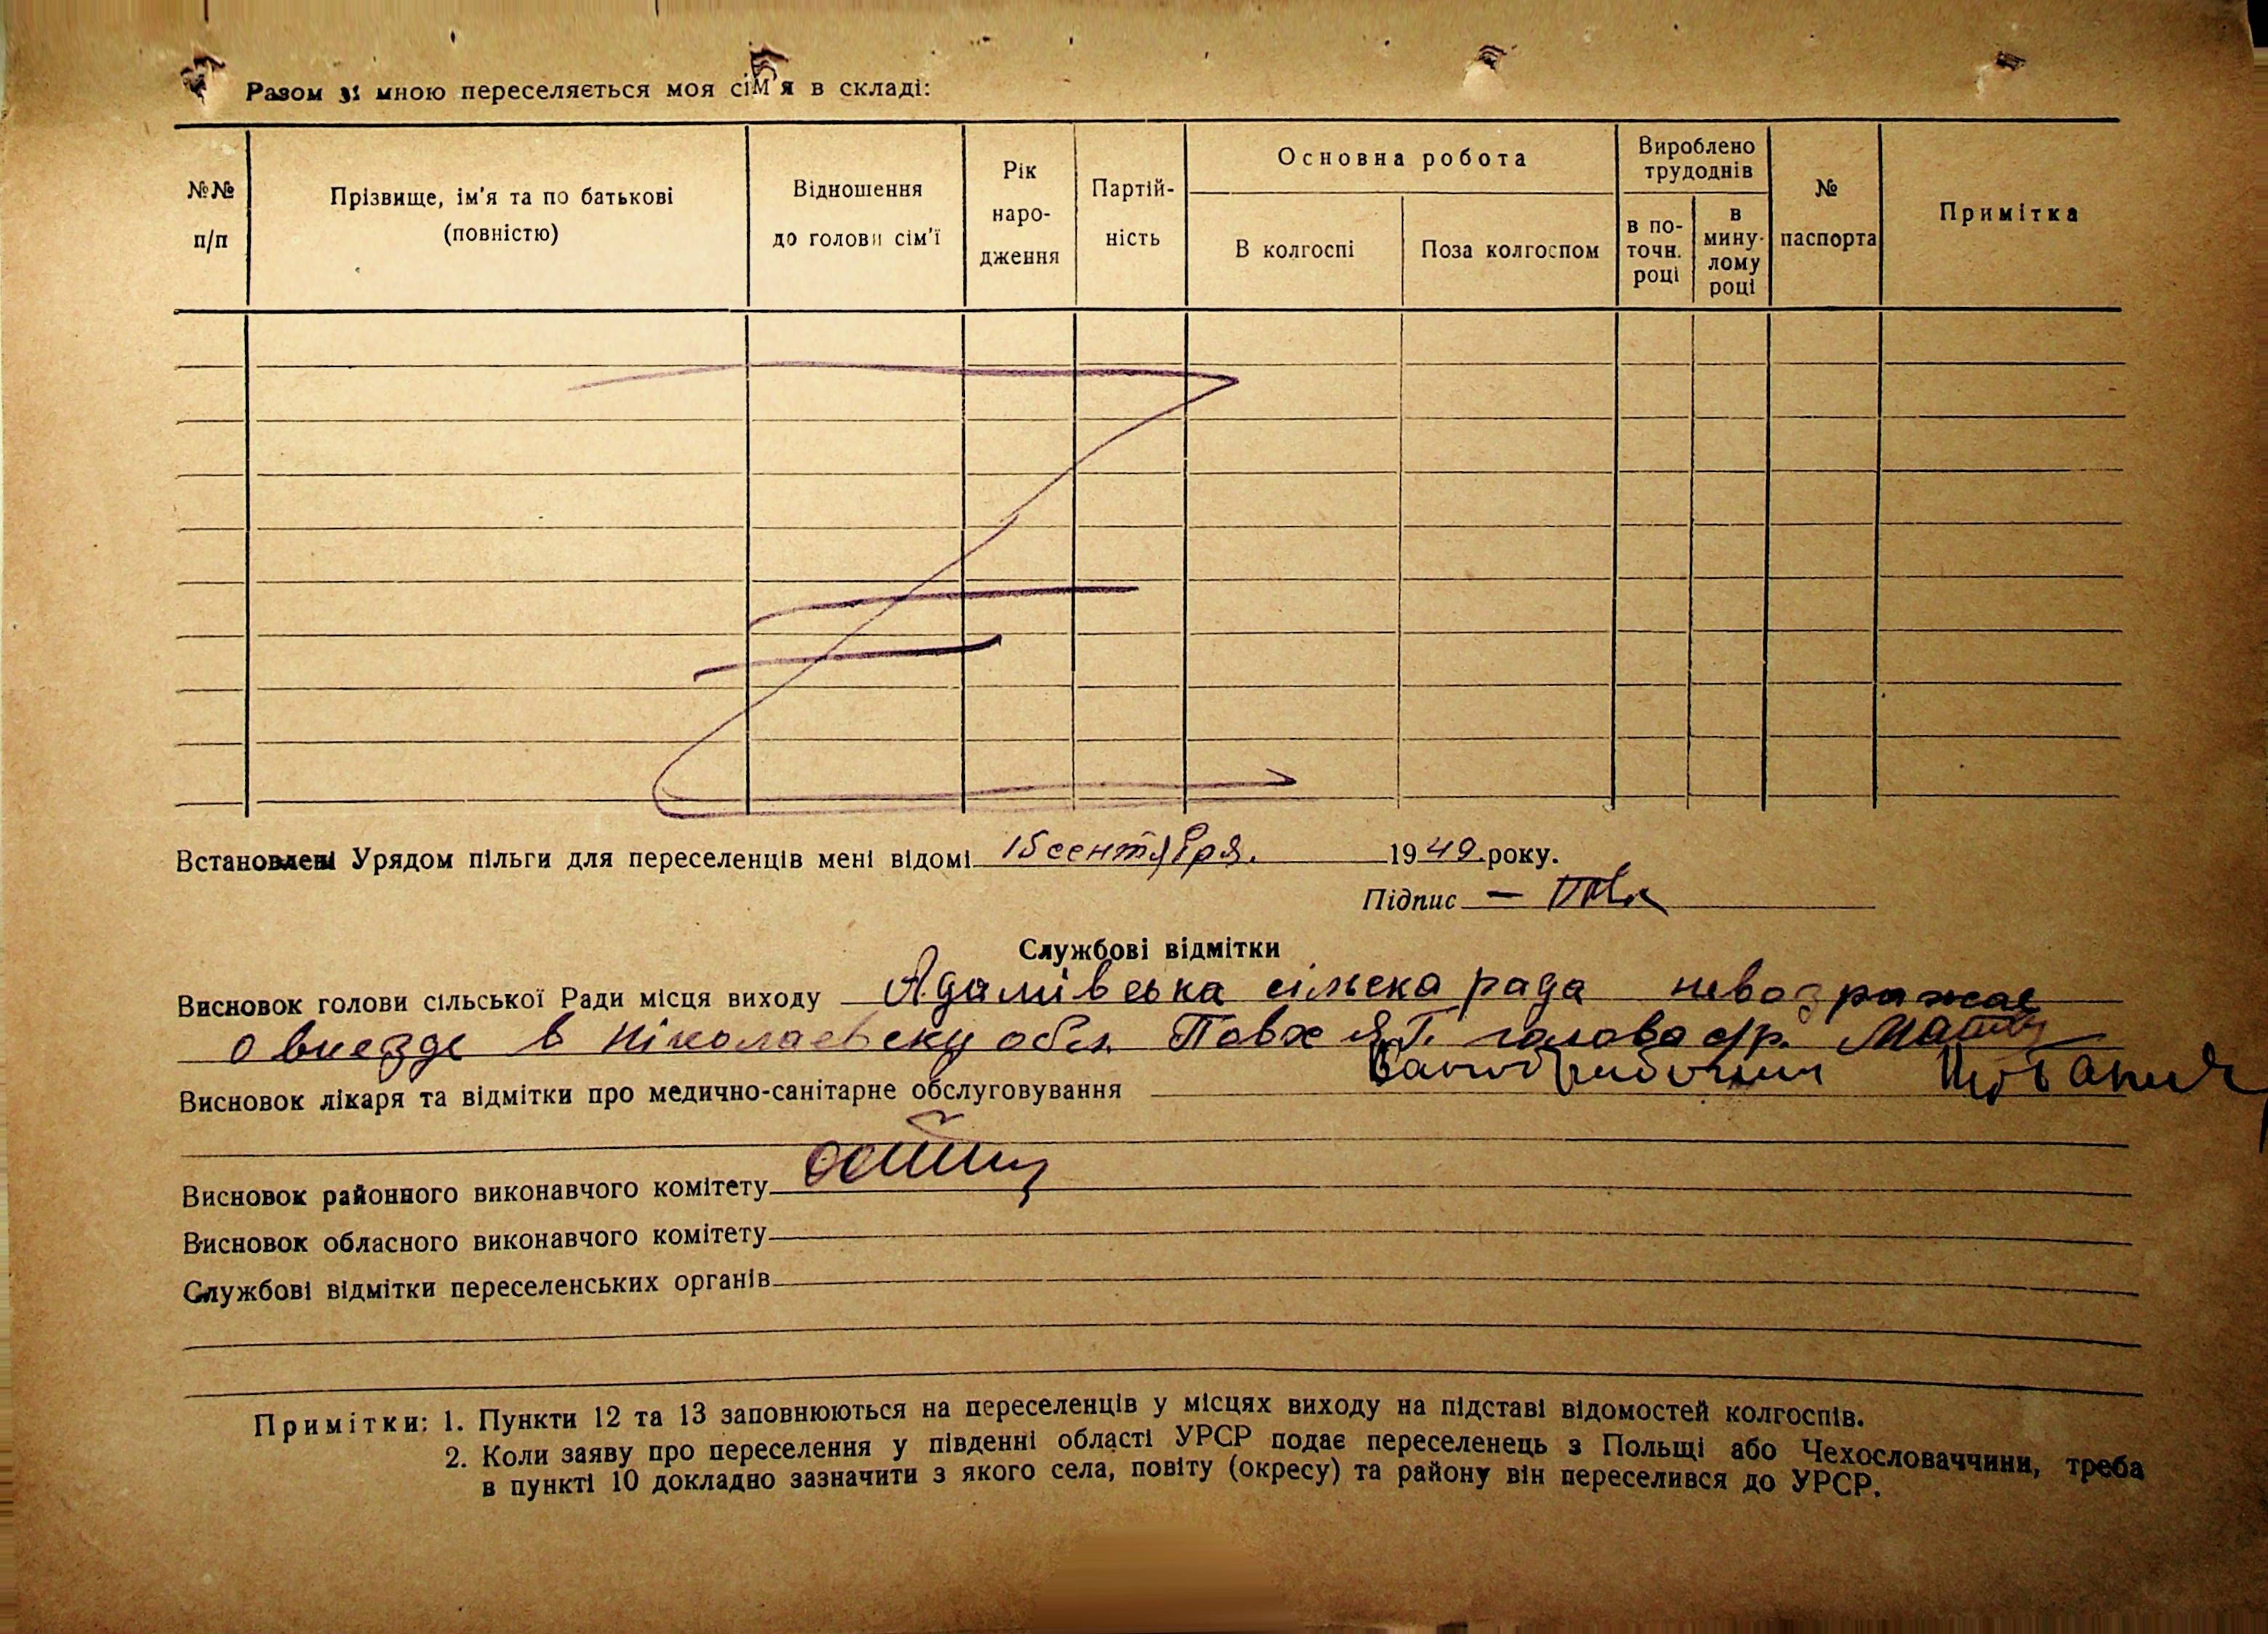 Разом зі мною переселяється моя сім'я в складі:
№№ п/п
Прізвище, ім'я та по батькові (повністю)
Відношення до голови сім'ї
Рік народження
Партійність
Основна робота
В колгоспі
Поза колгоспом
Вироблено трудоднів
в поточн. році
в минулому році
№ паспорта
Примітка
Встановлені Урядом пільги для переселенців мені відомі 15 сентября. 1949 року.
Підпис
Службові відмітки
Висновок голови сільської Ради місця виходу Адамівська сільска рада невозражає
о виезде в Ніколаевску обл. Повх Я.Т. голова с/р.
Висновок лікаря та відмітки про медично-санітарне обслуговування
Висновок районного виконавчого комітету
Висновок обласного виконавчого комітету
Службові відмітки переселенських органів
Примітки: 1. Пункти 12 та 13 заповнюються на переселенців у місцях виходу на підставі відомостей колгоспів.
2. Коли заяву про переселення у південні області УРСР подає переселенець з Польщі або Чехословаччини, треба
в пункті 10 докладно зазначити з якого села, повіту (окресу) та району він переселився до УРСР.